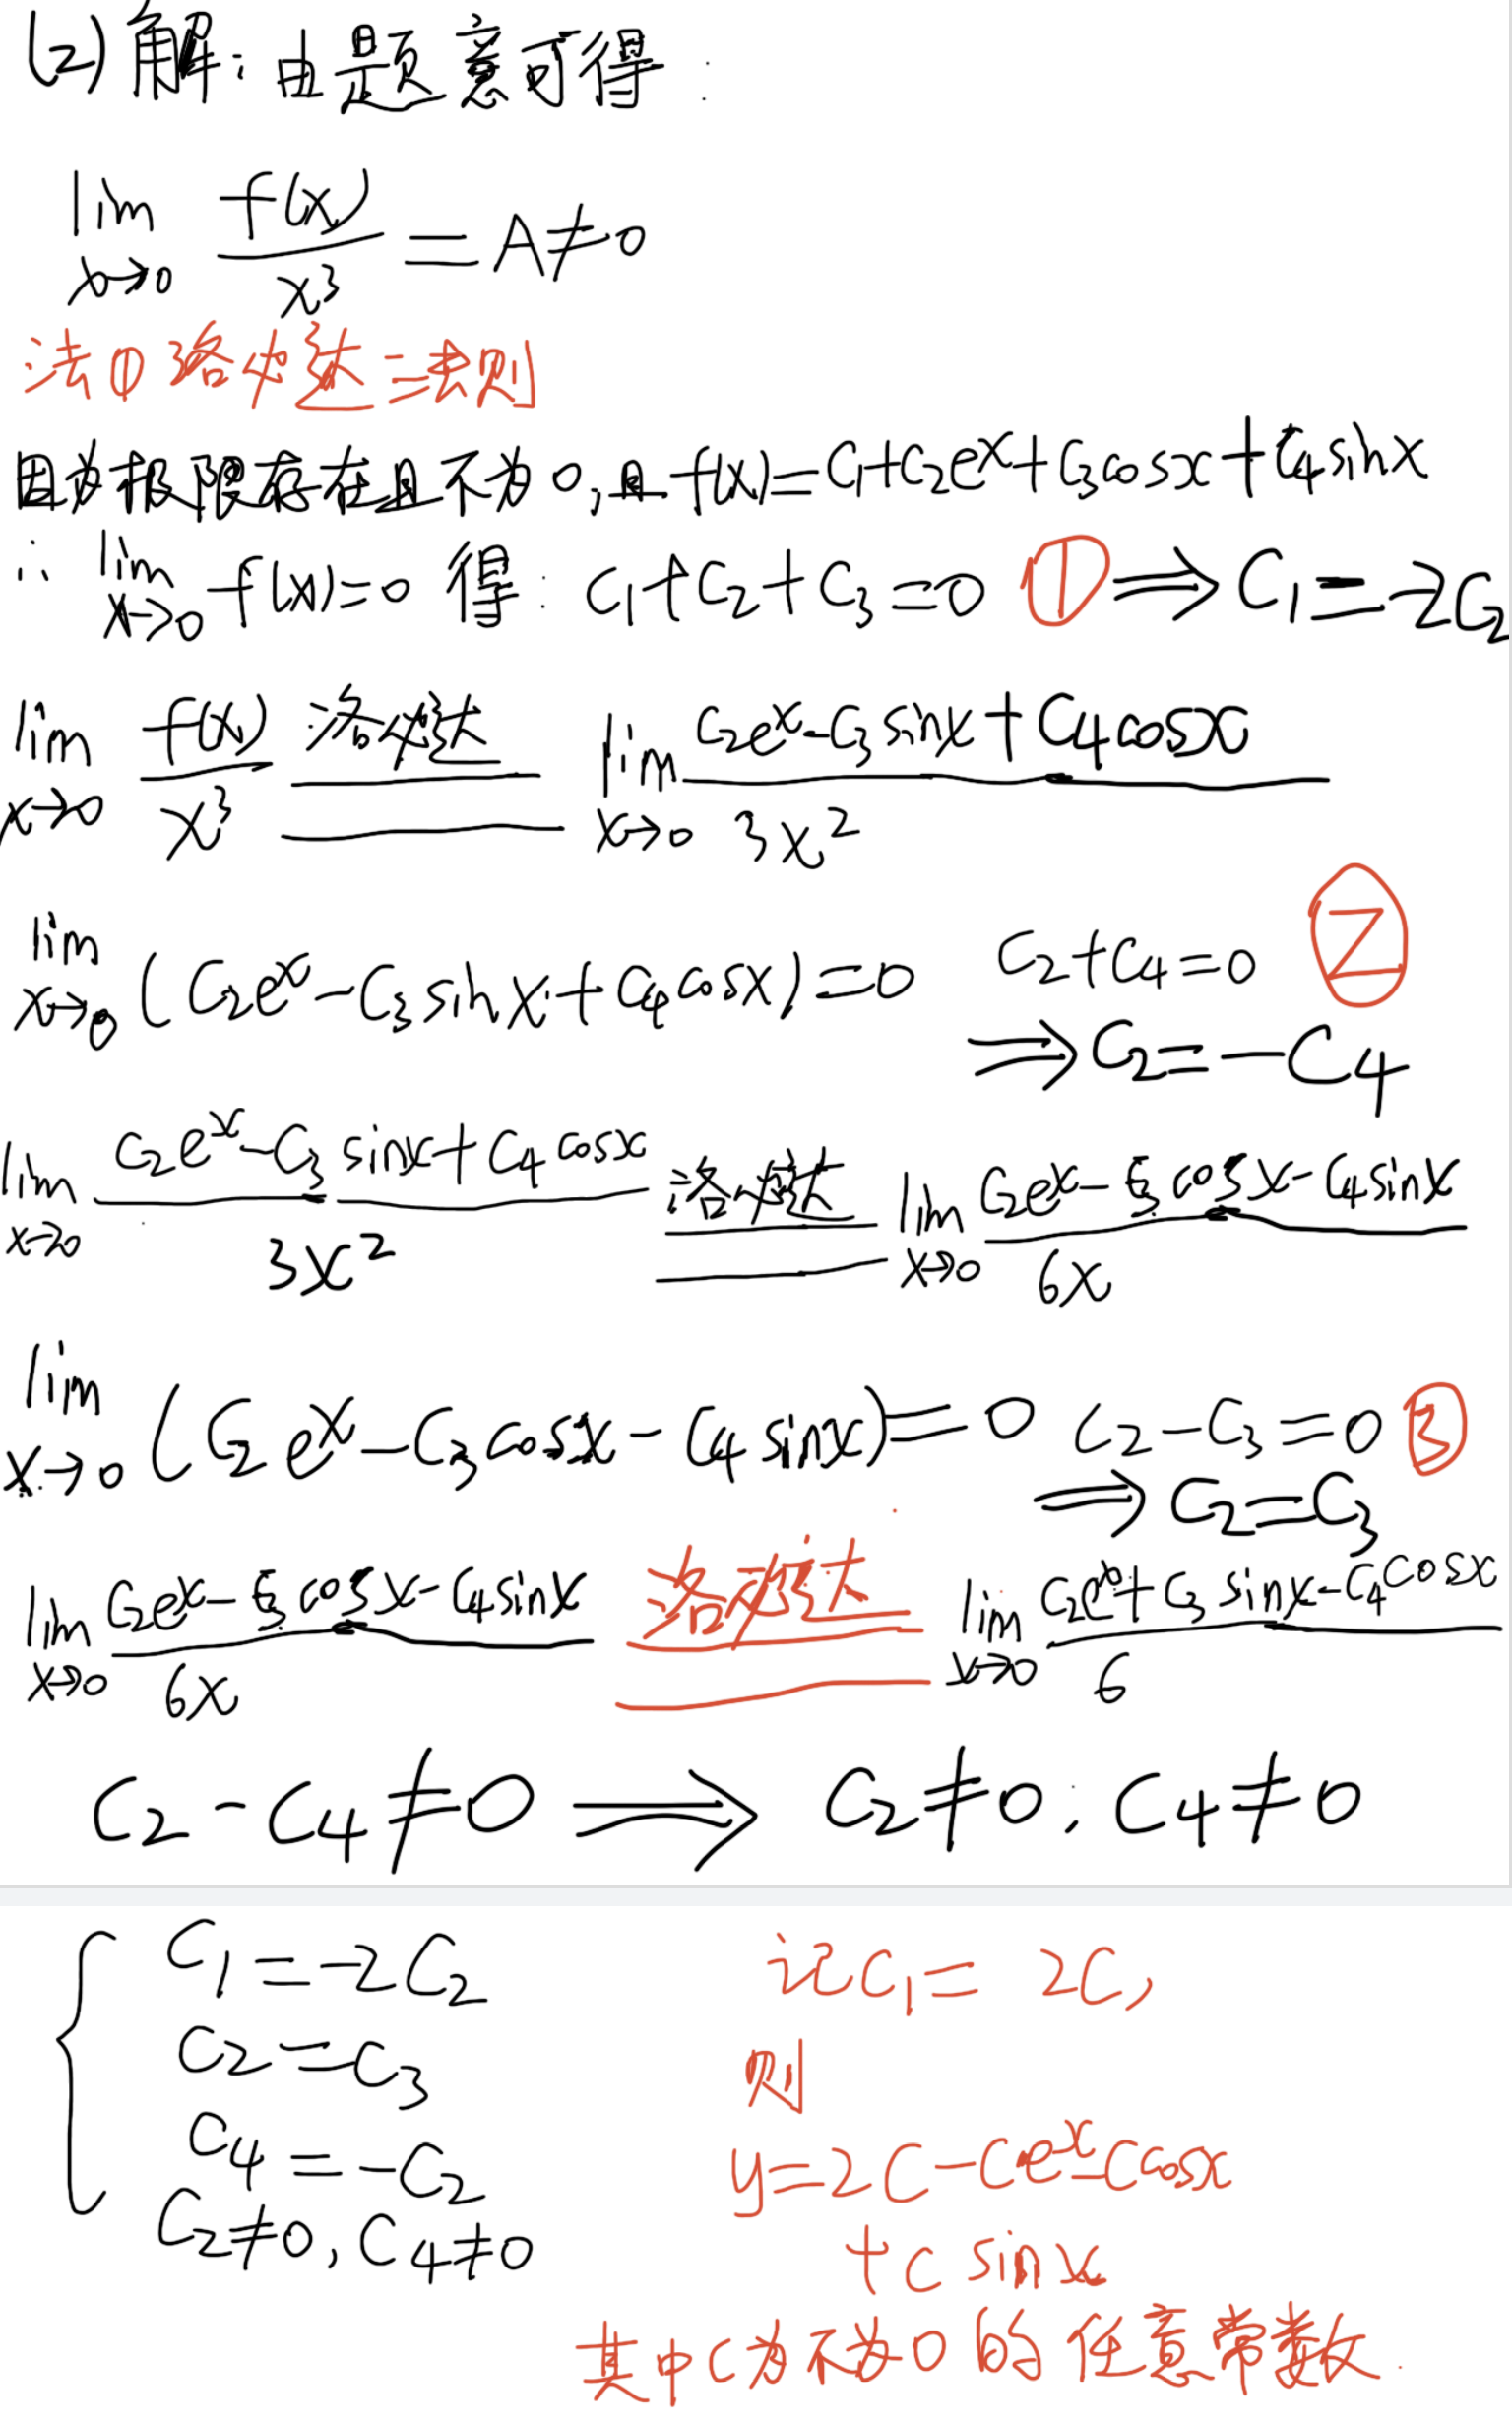 (2)解:由题意可得:
lim x→0 f(x)/x³ = A≠0
法① 洛必达法则
因为极限存在且不为0,且 f(x)=C₁+C₂eˣ+C₃cosx+C₄sinx
∴ lim x→0 f(x)=0 得: C₁+C₂+C₃=0 ① ⇒ C₁=-2C₂
lim x→0 f(x)/x³ 洛必达 = lim x→0 (C₂eˣ-C₃sinx+C₄cosx)/3x²
lim x→0 (C₂eˣ-C₃sinx+C₄cosx)=0 C₂+C₄=0 ②
⇒ C₂=-C₄
lim x→0 (C₂eˣ-C₃sinx+C₄cosx)/3x² 洛必达 = lim x→0 (C₂eˣ-C₃cosx-C₄sinx)/6x
lim x→0 (C₂eˣ-C₃cosx-C₄sinx)=0 C₂-C₃=0 ③
⇒ C₂=C₃
lim x→0 (C₂eˣ-C₃cosx-C₄sinx)/6x 洛必达 = lim x→0 (C₂eˣ+C₃sinx-C₄cosx)/6
C₂-C₄≠0 ⇒ C₂≠0. C₄≠0
C₁=-2C₂
C₂=C₃
C₄=-C₂
C₂≠0, C₄≠0
记C₁=2C,
则
y=2C-Ceˣ-Ccosx
+C sinx
其中C为不为0的任意常数.